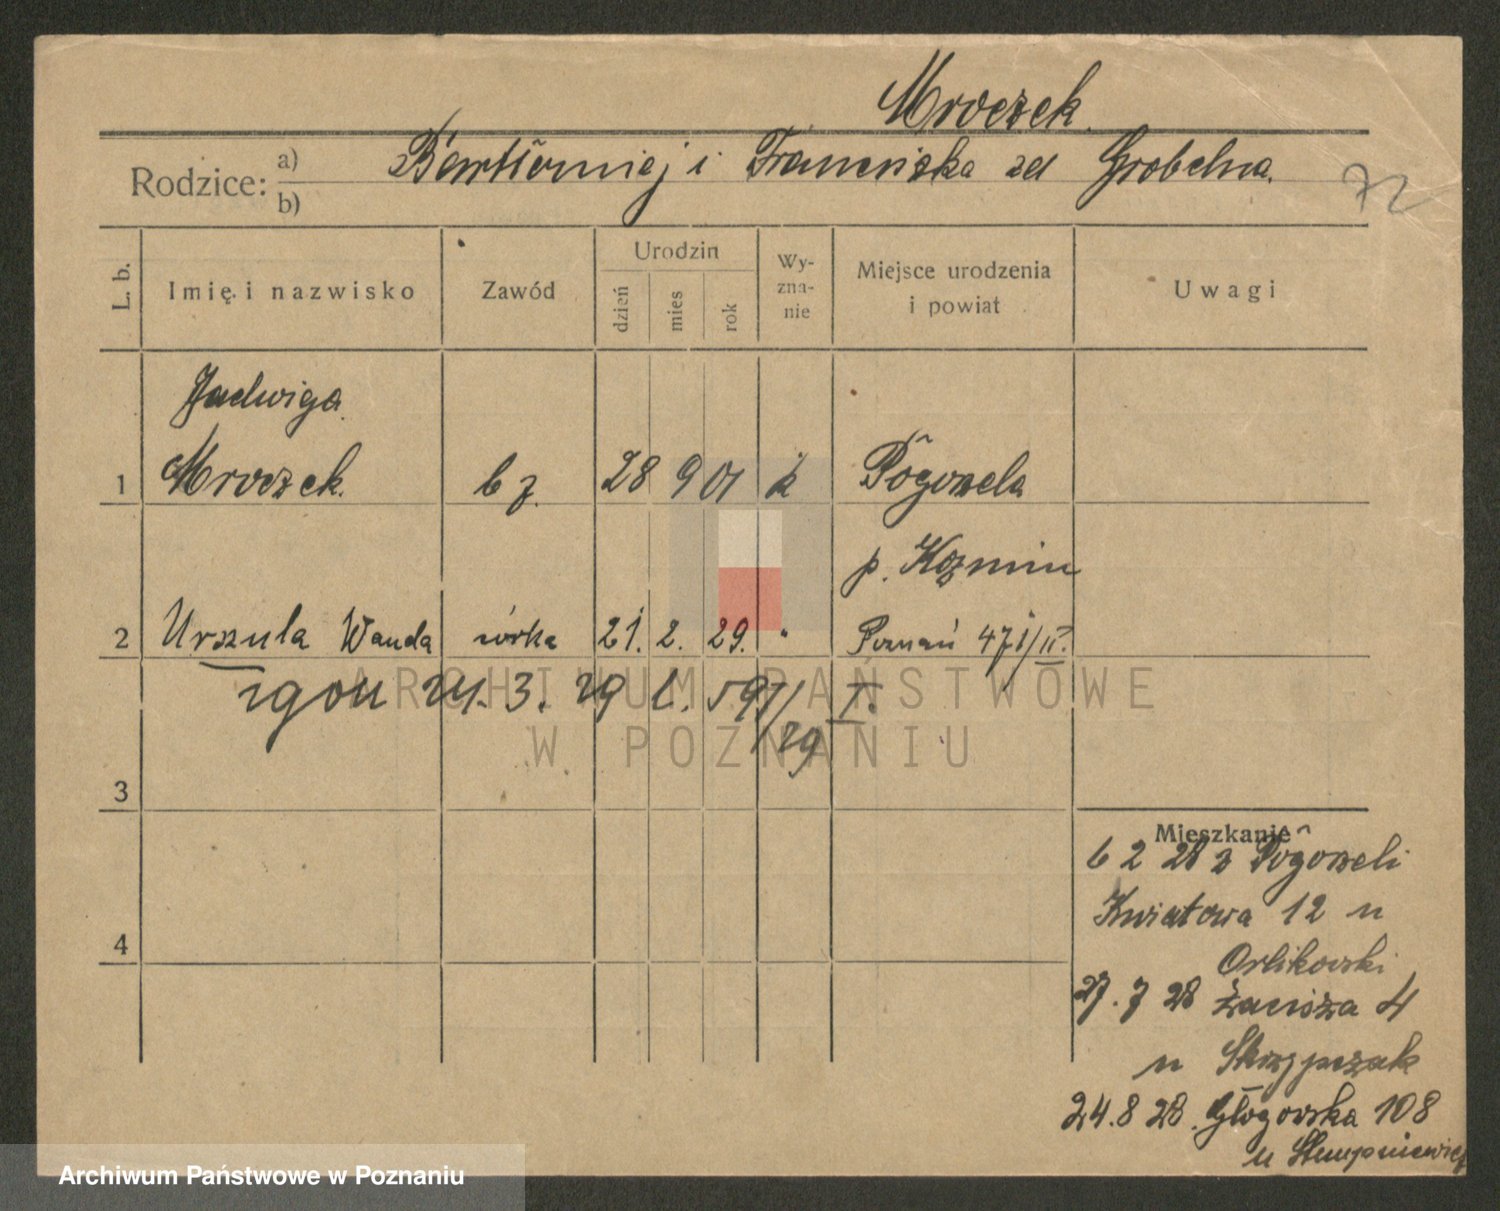 Mroczek.
Rodzice: a) Bartłomiej i Franciszka zd Grobelna.
b)
72
L. b. Imię i nazwisko Zawód Urodzin dzień mies rok Wy-zna-nie Miejsce urodzenia i powiat Uwagi
Jadwiga
1 Mroczek. bz. 28 9 01 k Pogorzela
p. Koźmin
2 Urszula Wanda córka 21. 2. 29. " Poznań 471/II.
zgon 24. 3. 29 l. 597/29 I.
ARCHIWUM PAŃSTWOWE
W POZNANIU
3
4
Mieszkanie
6 2 28 z Pogorzeli
Kwiatowa 12 u
Orlikowski
27. 7 28 Zacisza 4
u Skrzypczak
24. 8 28. Głogowska 108
u Stempniewicz
Archiwum Państwowe w Poznaniu